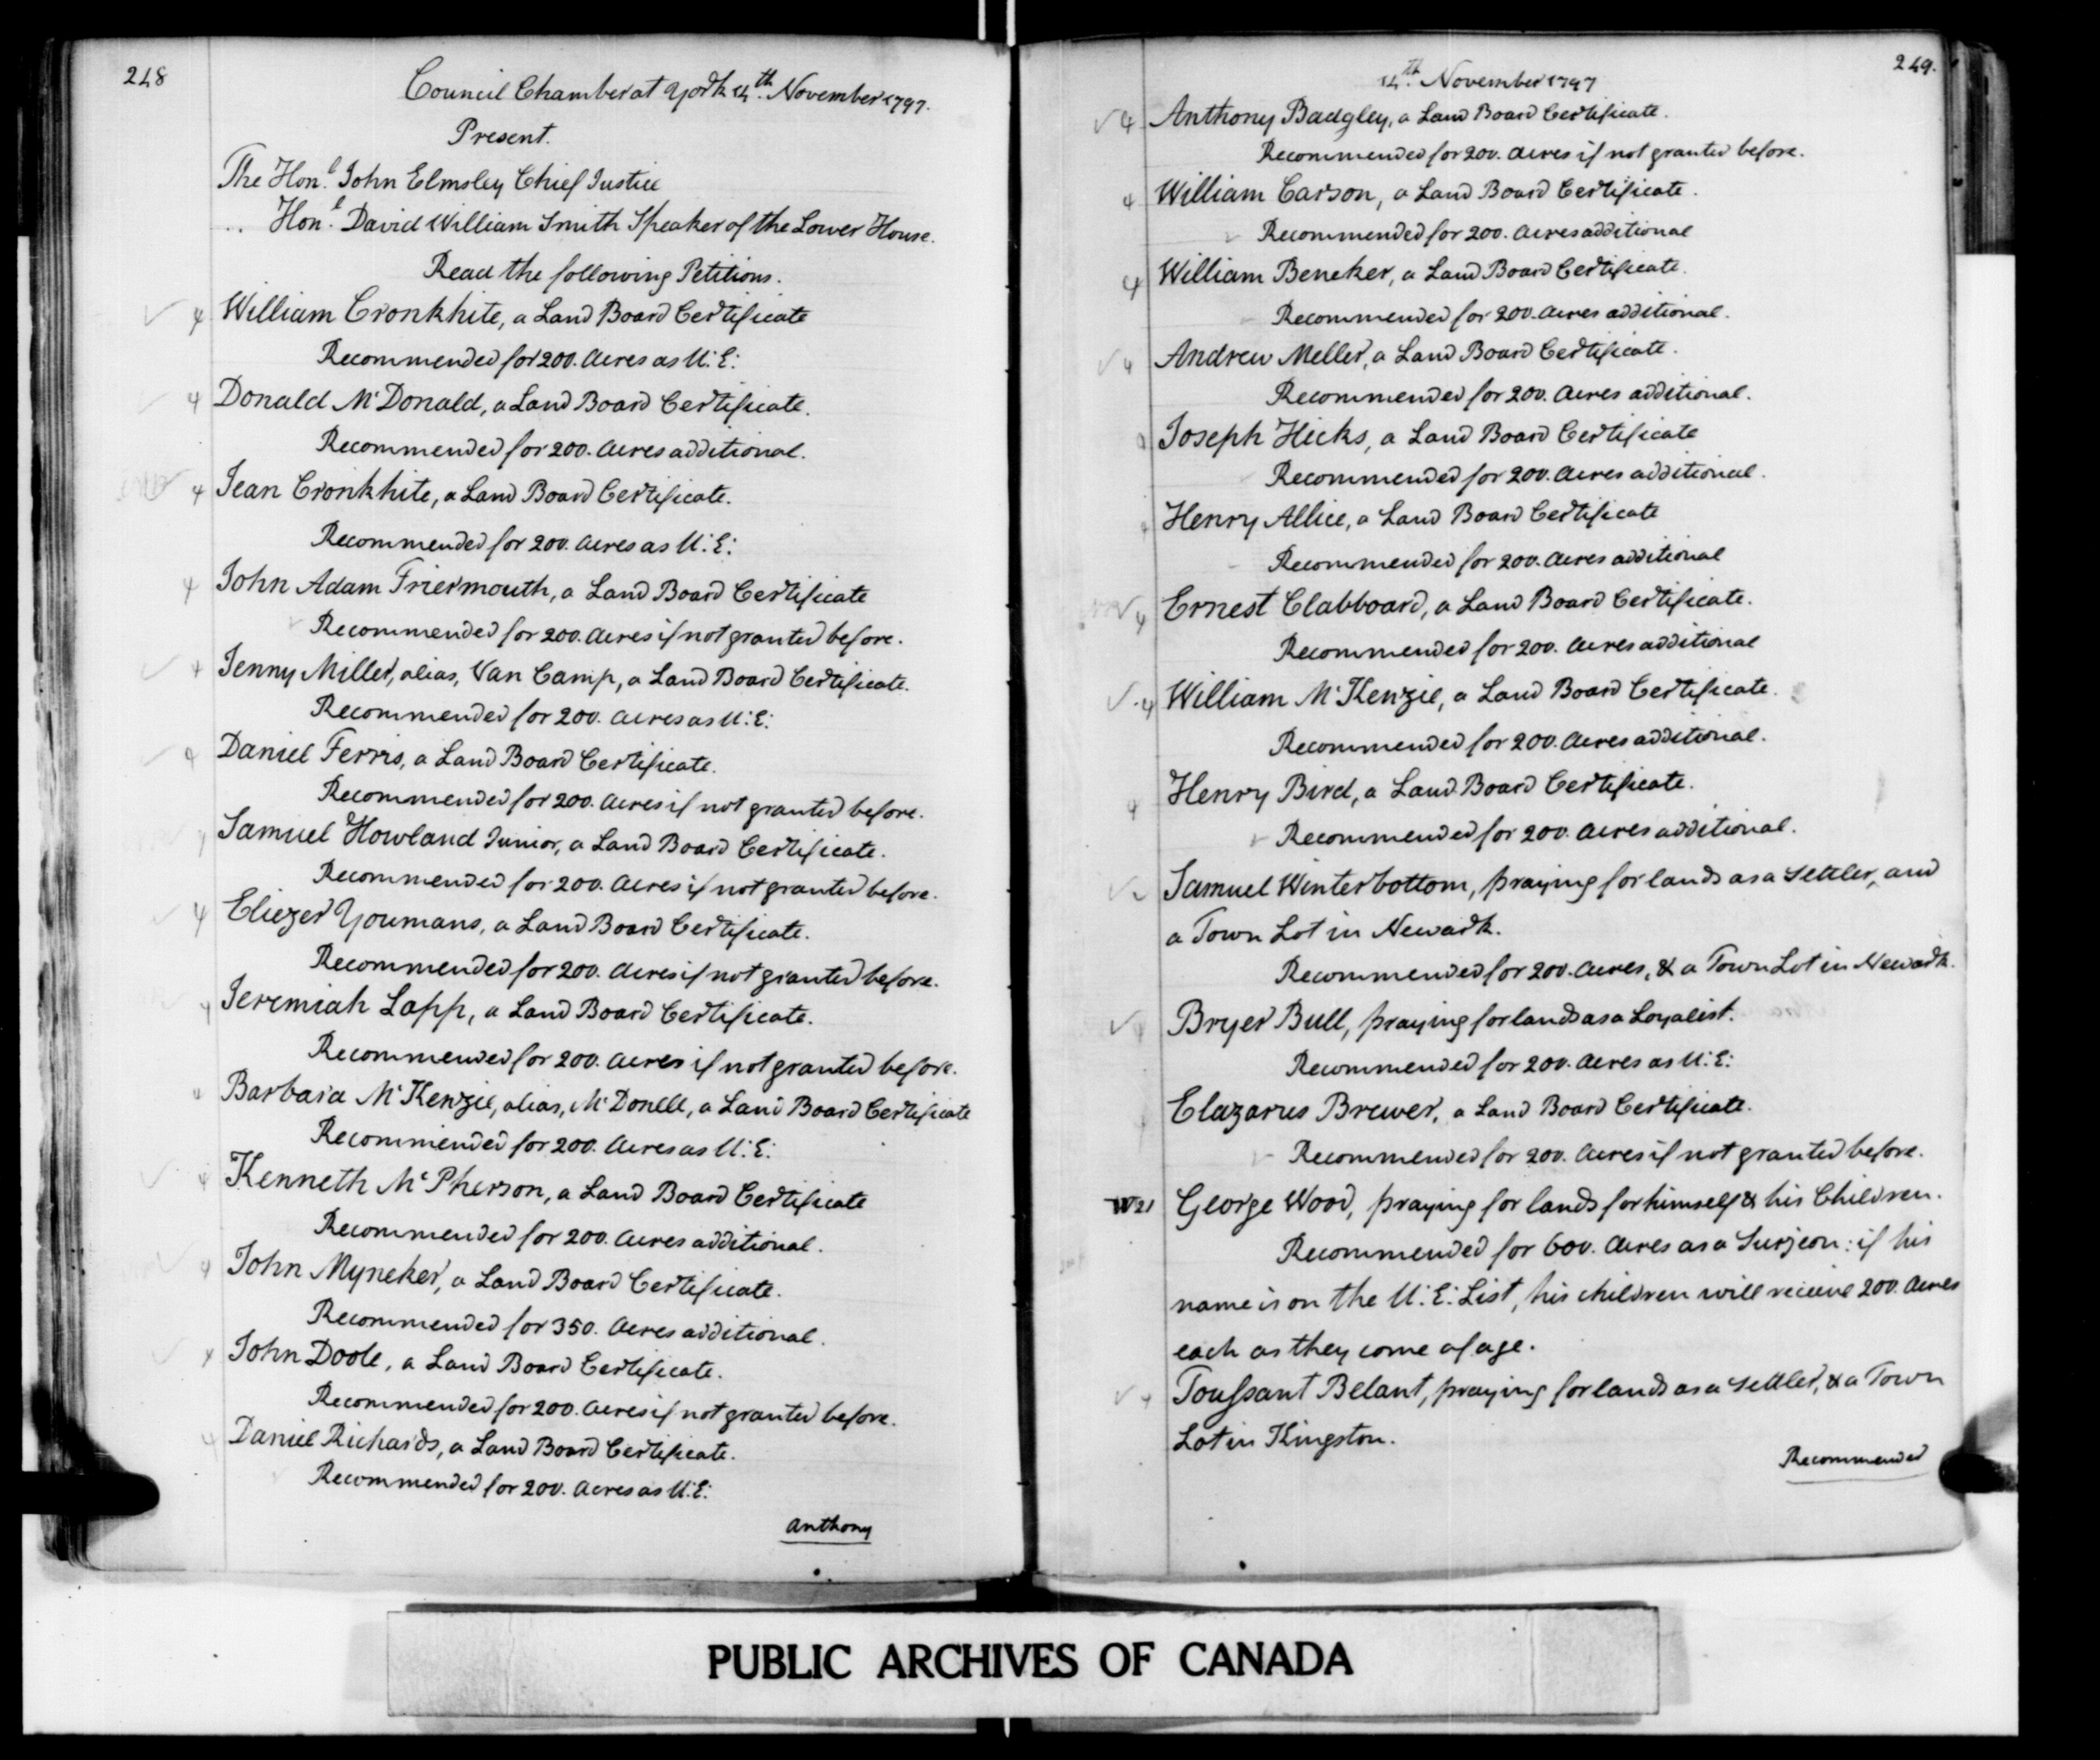 248
Council Chamber at York 14th. November 1797.
Present.
The Honl. John Elmsley Chief Justice
.. Honl. David William Smith Speaker of the Lower House.
Read the following Petitions.
4 William Cronkhite, a Land Board Certificate
Recommended for 200. Acres as U:E:
4 Donald McDonald, a Land Board Certificate.
Recommended for 200. Acres additional.
4 Jean Cronkhite, a Land Board Certificate.
Recommended for 200. Acres as U:E:
4 John Adam Friermouth, a Land Board Certificate
Recommended for 200. Acres if not granted before.
4 Jenny Miller, alias, Van Camp, a Land Board Certificate.
Recommended for 200. Acres as U:E:
4 Daniel Ferris, a Land Board Certificate.
Recommended for 200. Acres if not granted before.
Samuel Howland Junior, a Land Board Certificate.
Recommended for 200. Acres if not granted before.
4 Eliezer Youmans, a Land Board Certificate.
Recommended for 200. Acres if not granted before.
4 Jeremiah Lapp, a Land Board Certificate.
Recommended for 200. Acres if not granted before.
Barbara McKenzie, alias, McDonell, a Land Board Certificate
Recommended for 200. Acres as U:E:
4 Kenneth McPherson, a Land Board Certificate
Recommended for 200. Acres additional.
4 John Myneker, a Land Board Certificate.
Recommended for 350. Acres additional.
4 John Doole, a Land Board Certificate.
Recommended for 200. Acres if not granted before.
4 Daniel Richards, a Land Board Certificate.
Recommended for 200. Acres as U:E:
Anthony
249.
14th. November 1797
4 Anthony Badgley, a Land Board Certificate.
Recommended for 200. Acres if not granted before.
4 William Carson, a Land Board Certificate.
Recommended for 200. Acres additional
4 William Beneker, a Land Board Certificate.
Recommended for 200. Acres additional.
4 Andrew Meller, a Land Board Certificate.
Recommended for 200. Acres additional.
Joseph Hicks, a Land Board Certificate
Recommended for 200. Acres additional.
Henry Allice, a Land Board Certificate
Recommended for 200. Acres additional
4 Ernest Clabboard, a Land Board Certificate.
Recommended for 200. Acres additional
4 William McKenzie, a Land Board Certificate.
Recommended for 200. Acres additional.
4 Henry Bird, a Land Board Certificate.
Recommended for 200. Acres additional.
Samuel Winterbottom, praying for lands as a Settler, and
a Town Lot in Newark.
Recommended for 200. Acres, & a Town Lot in Newark.
Bryer Bull, praying for lands as a Loyalist.
Recommended for 200. Acres as U:E:
Elazarus Brewer, a Land Board Certificate.
Recommended for 200. Acres if not granted before.
W21 George Wood, praying for lands for himself & his Children.
Recommended for 600. Acres as a Surjeon: if his
name is on the U:E: List, his children will receive 200. Acres
each as they come of age.
4 Toussant Belant, praying for lands as a Settler, & a Town
Lot in Kingston.
Recommended
PUBLIC ARCHIVES OF CANADA